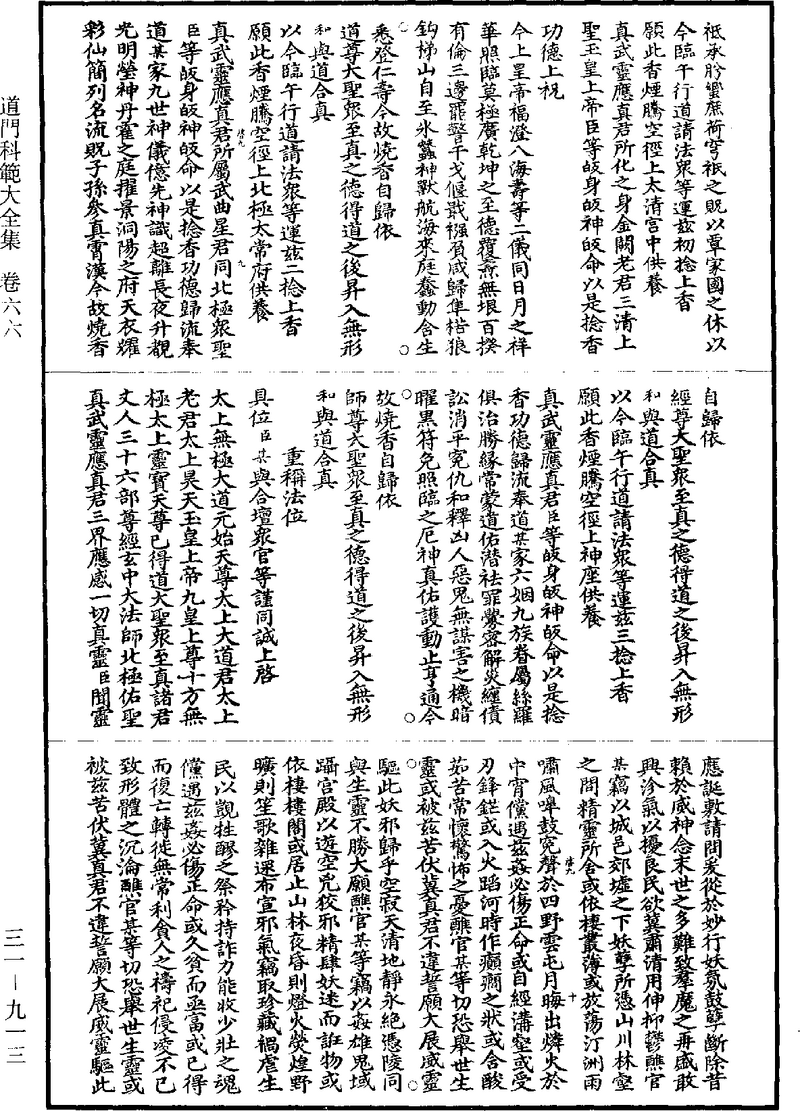 道門科範大全集 卷六六
三一—九一三
祗承肸蠁庶荷穹祇之貺以覃家國之休以
今臨午行道請法眾等運茲初捻上香
願此香煙騰空徑上太清宮中供養
真武靈應真君所化之身金闕老君三清上
聖玉皇上帝臣等皈身皈神皈命以是捻香
功德上祝
今上皇帝福澄八海壽等二儀同日月之祥
華照臨莫極廣乾坤之至德覆燾無垠百揆
有倫三邊罷警干戈偃戢襁負咸歸隼楛狼
鈎梯山自至氷蠶神獸航海來庭蠢動含生
悉登仁壽今故燒香自歸依
道尊大聖眾至真之德得道之後昇入無形
和與道合真
以今臨午行道請法眾等運茲二捻上香
願此香煙騰空徑上北極太常府供養
真武靈應真君所屬武曲星君同北極眾聖
臣等皈身皈神皈命以是捻香功德歸流奉
道某家九世神儀億先神識超離長夜升覩
光明瑩神丹霍之庭擢景洞陽之府天衣耀
彩仙簡列名流貺子孫參真霄漢今故燒香
自歸依
經尊大聖眾至真之德得道之後昇入無形
和與道合真
以今臨午行道請法眾等運茲三捻上香
願此香煙騰空徑上神座供養
真武靈應真君臣等皈身皈神皈命以是捻
香功德歸流奉道某家六姻九族眷屬絲羅
俱洽勝緣常蒙道佑潛袪罪釁密解災纏債
訟消平寃仇和釋凶人惡鬼無謀害之機暗
曜黑符免照臨之厄神真佑護動止亨通今
故燒香自歸依
師尊大聖眾至真之德得道之後昇入無形
和與道合真
重稱法位
具位臣某與合壇眾官等謹同誠上啓
太上無極大道元始天尊太上大道君太上
老君太上昊天玉皇上帝九皇上尊十方無
極太上靈寶天尊已得道大聖眾至真諸君
丈人三十六部尊經玄中大法師北極佑聖
真武靈應真君三界應感一切真靈臣聞靈
應誕敷請問爰從於妙行妖氛鼓孽斷除昔
賴於威神念末世之多難致羣魔之再盛敢
興沴氣以擾良民欲冀肅清用伸抑鬱醮官
某竊以城邑郊墟之下妖孽所憑山川林壑
之間精靈所舍或依棲叢薄或放蕩汀洲雨
嘯風嘷鼓寃聲於四野雲屯月晦出燐火於
中宵儻遇茲姦必傷正命或自經溝壑或受
刃鋒鋩或入火蹈河時作癲癇之狀或含酸
茹苦常懷驚怖之憂醮官某等切恐舉世生
靈或被茲苦伏冀真君不違誓願大展威靈
驅此妖邪歸乎空寂天清地靜永絕憑陵同
與生靈不勝大願醮官某等竊以姦雄鬼域
躡宮殿以遊空兇狡邪精肆妖迷而誑物或
依棲樓閣或居止山林夜昏則燈火熒煌野
曠則笙歌雜遝布宣邪氣竊取珍藏禍虐生
民以覬牲醪之祭矜持詐力能收少壯之魂
儻遇茲姦必傷正命或久貧而亟富或已得
而復亡轉徙無常利食人之禱祀侵凌不已
致形體之沉淪醮官某等切恐舉世生靈或
被茲苦伏冀真君不違誓願大展威靈驅此